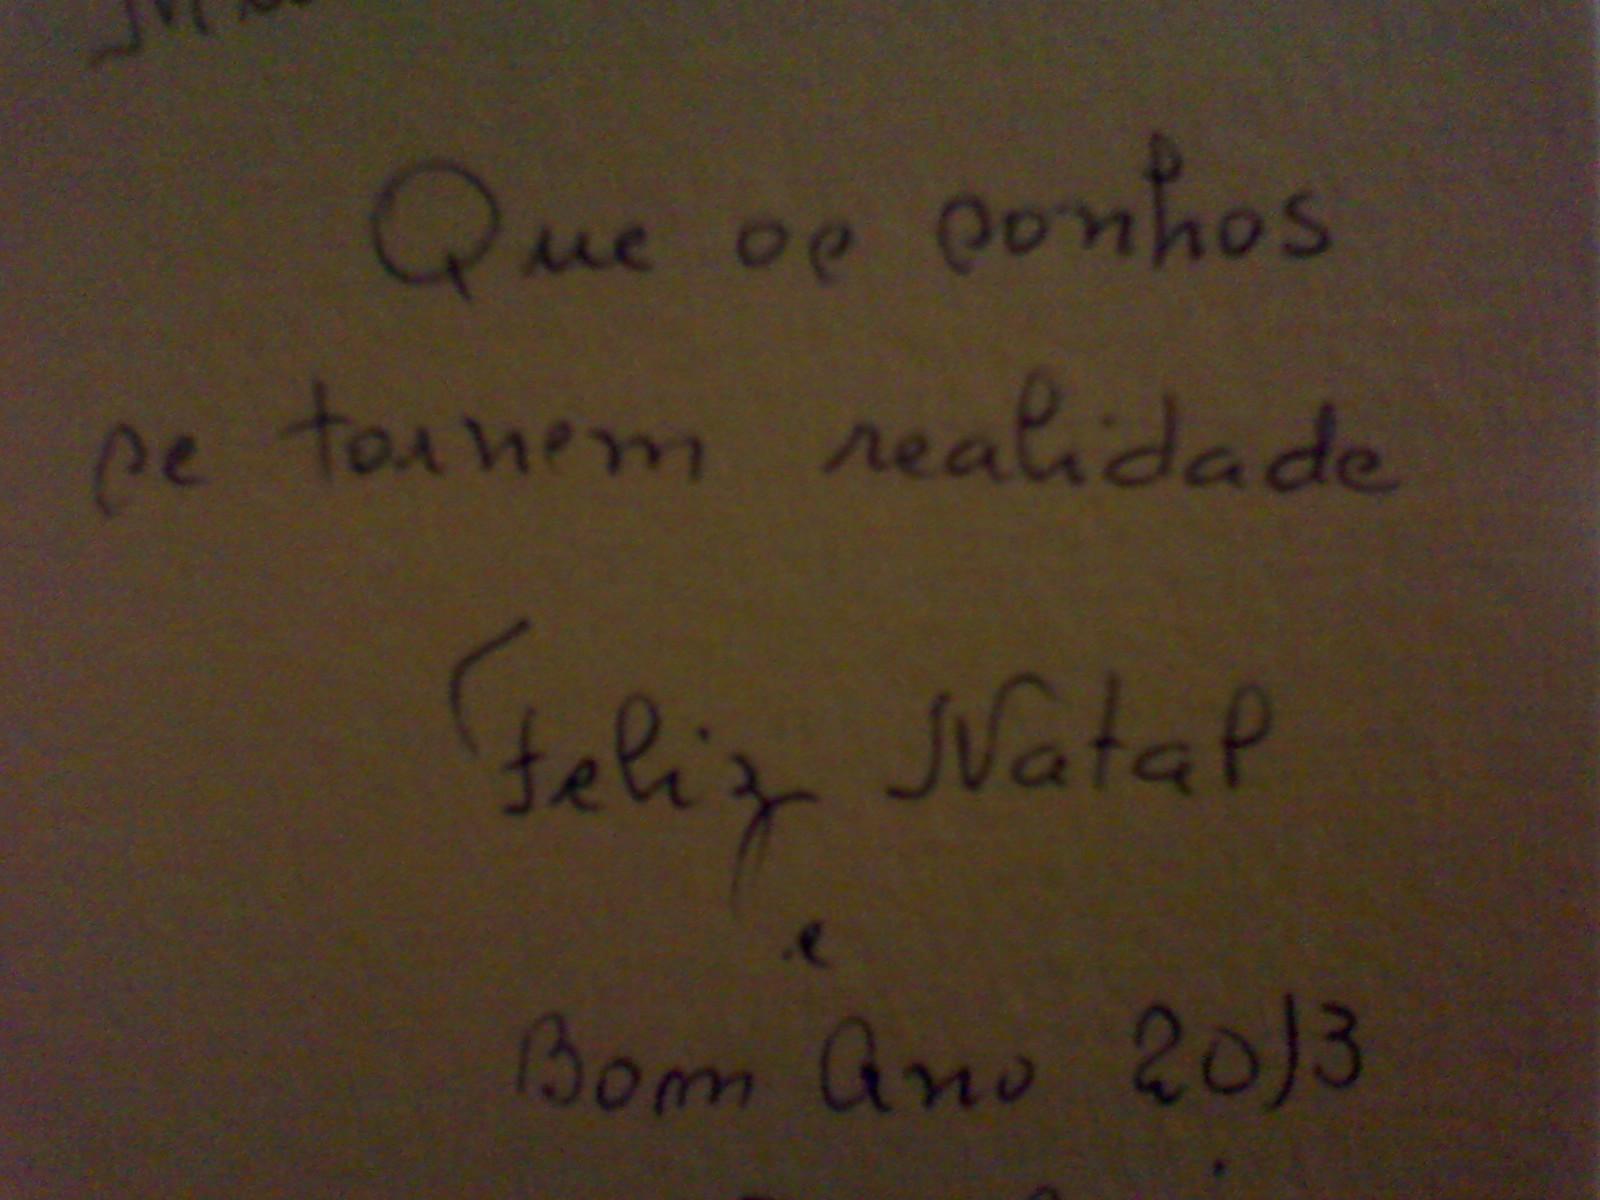 Que os sonhos
se tornem realidade
Feliz Natal
e
Bom Ano 2013